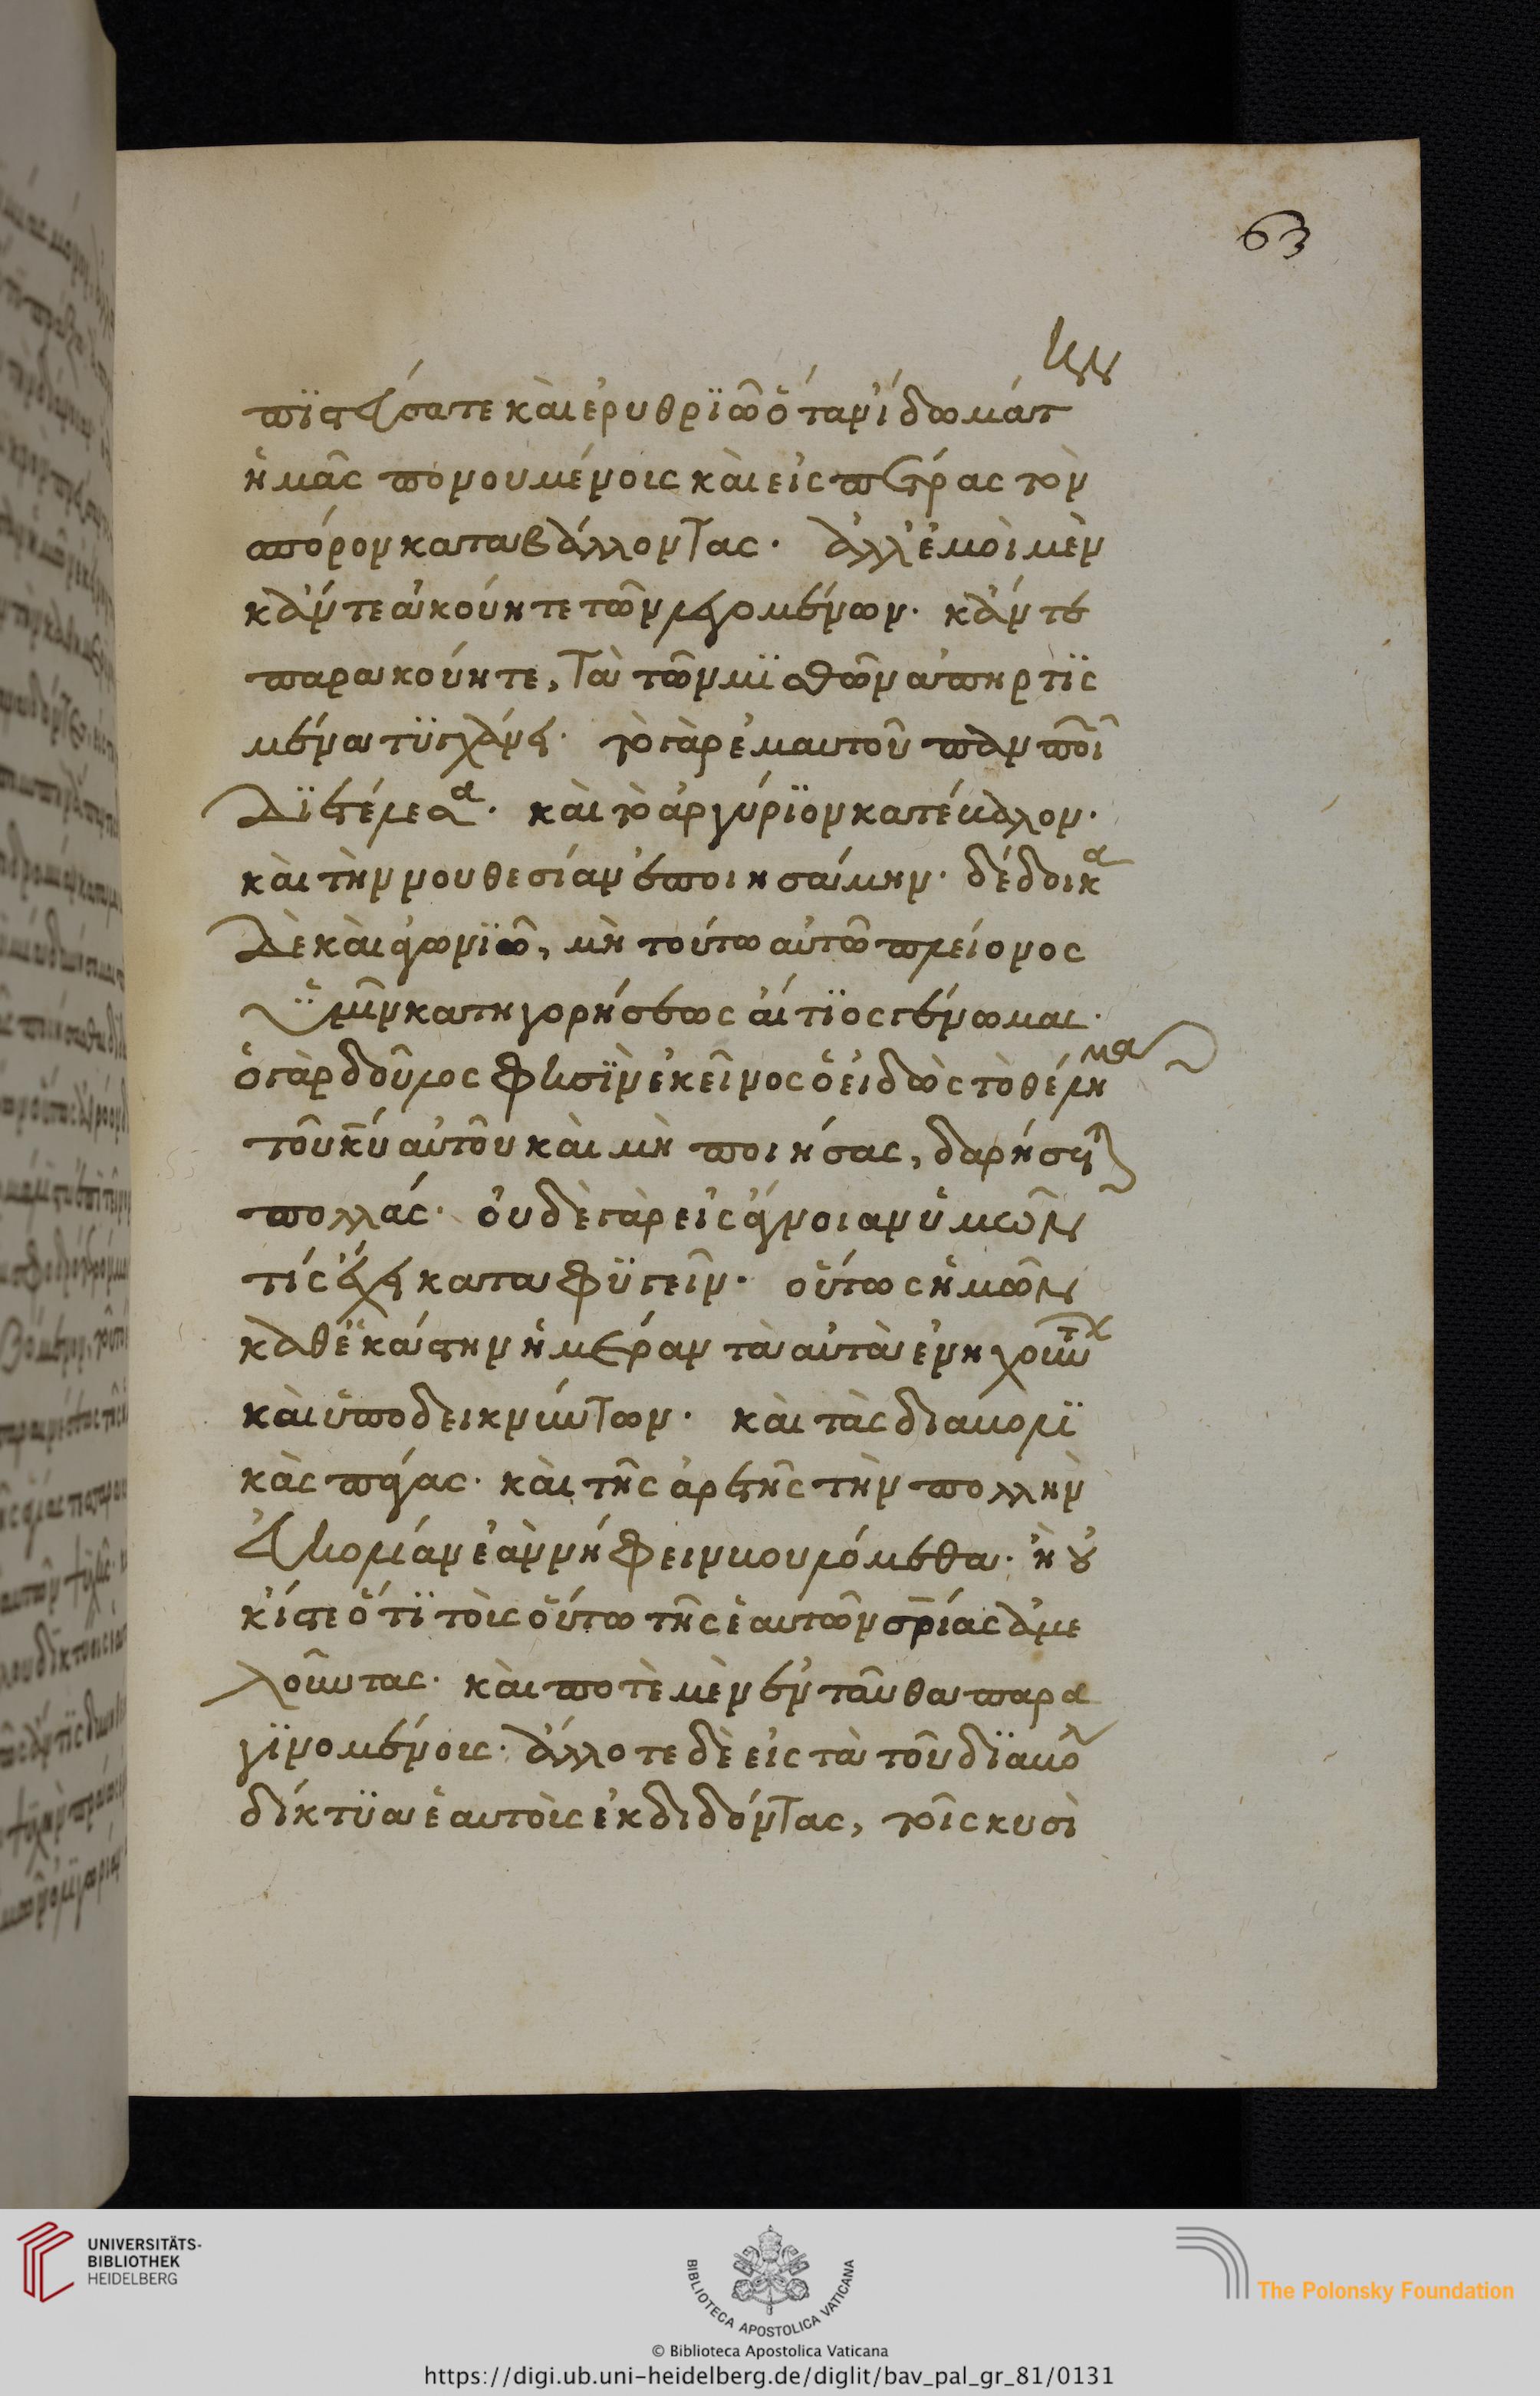 63
πϊστεύσατε καὶ ἐρυθρϊῶ ὅταν ἴδω μάτ
ην
ἡμᾶς πονουμένοις καὶ εἰς πέτρας τὸν
σπόρον καταβάλλοντας. ἀλλ' ἐμοὶ μὲν
κἄν τε ἀκούητε τῶν λεγομένων. κἄν τε
παρακούητε, τὰ τῶν μϊσθῶν ἀπηρτϊσ
μένα τϋγχάνει. τὸ γὰρ ἐμαυτοῦ πᾶν
δϊετέλεσα. καὶ τὸ ἀργύρϊον κατέβαλον.
καὶ τὴν νουθεσίαν ἐποιησάμην. δέδοικα
δὲ καὶ ἀγωνϊῶ, μὴ τούτω αὐτῶ πλείονος
ὑμῖν κατηγορήσεως αἴτϊος γένωμαι.
ὁ γὰρ δοῦλος φησῒν ἐκεῖνος ὁ εἰδὼς τὸ θέλημα
τοῦ κ̅υ̅ αὐτοῦ καὶ μὴ ποιήσας, δαρήσεται
πολλάς. οὐδὲ γὰρ εἰς ἄγνοιαν ὑμῶν
τίς ἔχει καταφϋγεῖν. οὕτως ἡμῶν
καθ' ἑκάστην ἡμέραν τὰ αὐτὰ ἐνηχούντων
καὶ ὑποδεικνύντων. καὶ τὰς διαβολϊ
κὰς πάγας. καὶ τῆς ἀρετῆς τὴν πολλὴν
εὐκολίαν ἐὰν νήφειν βουλόμεθα. ἢ οὐ
κ ἴστε ὅτϊ τοῖς οὕτω τῆς ἑαυτῶν σ̅ρ̅ίας ἀμε
λοῦντας. καὶ ποτὲ μὲν ἐνταῦθα παρα
γϊνομένοις. ἄλλοτε δὲ εἰς τὰ τοῦ δϊαβό
δίκτϋα ἑαυτοῖς ἐκδιδόντας, τοῖς κυσὶ
UNIVERSITÄTS-
BIBLIOTHEK
HEIDELBERG
BIBLIOTECA APOSTOLICA VATICANA
The Polonsky Foundation
© Biblioteca Apostolica Vaticana
https://digi.ub.uni-heidelberg.de/diglit/bav_pal_gr_81/0131